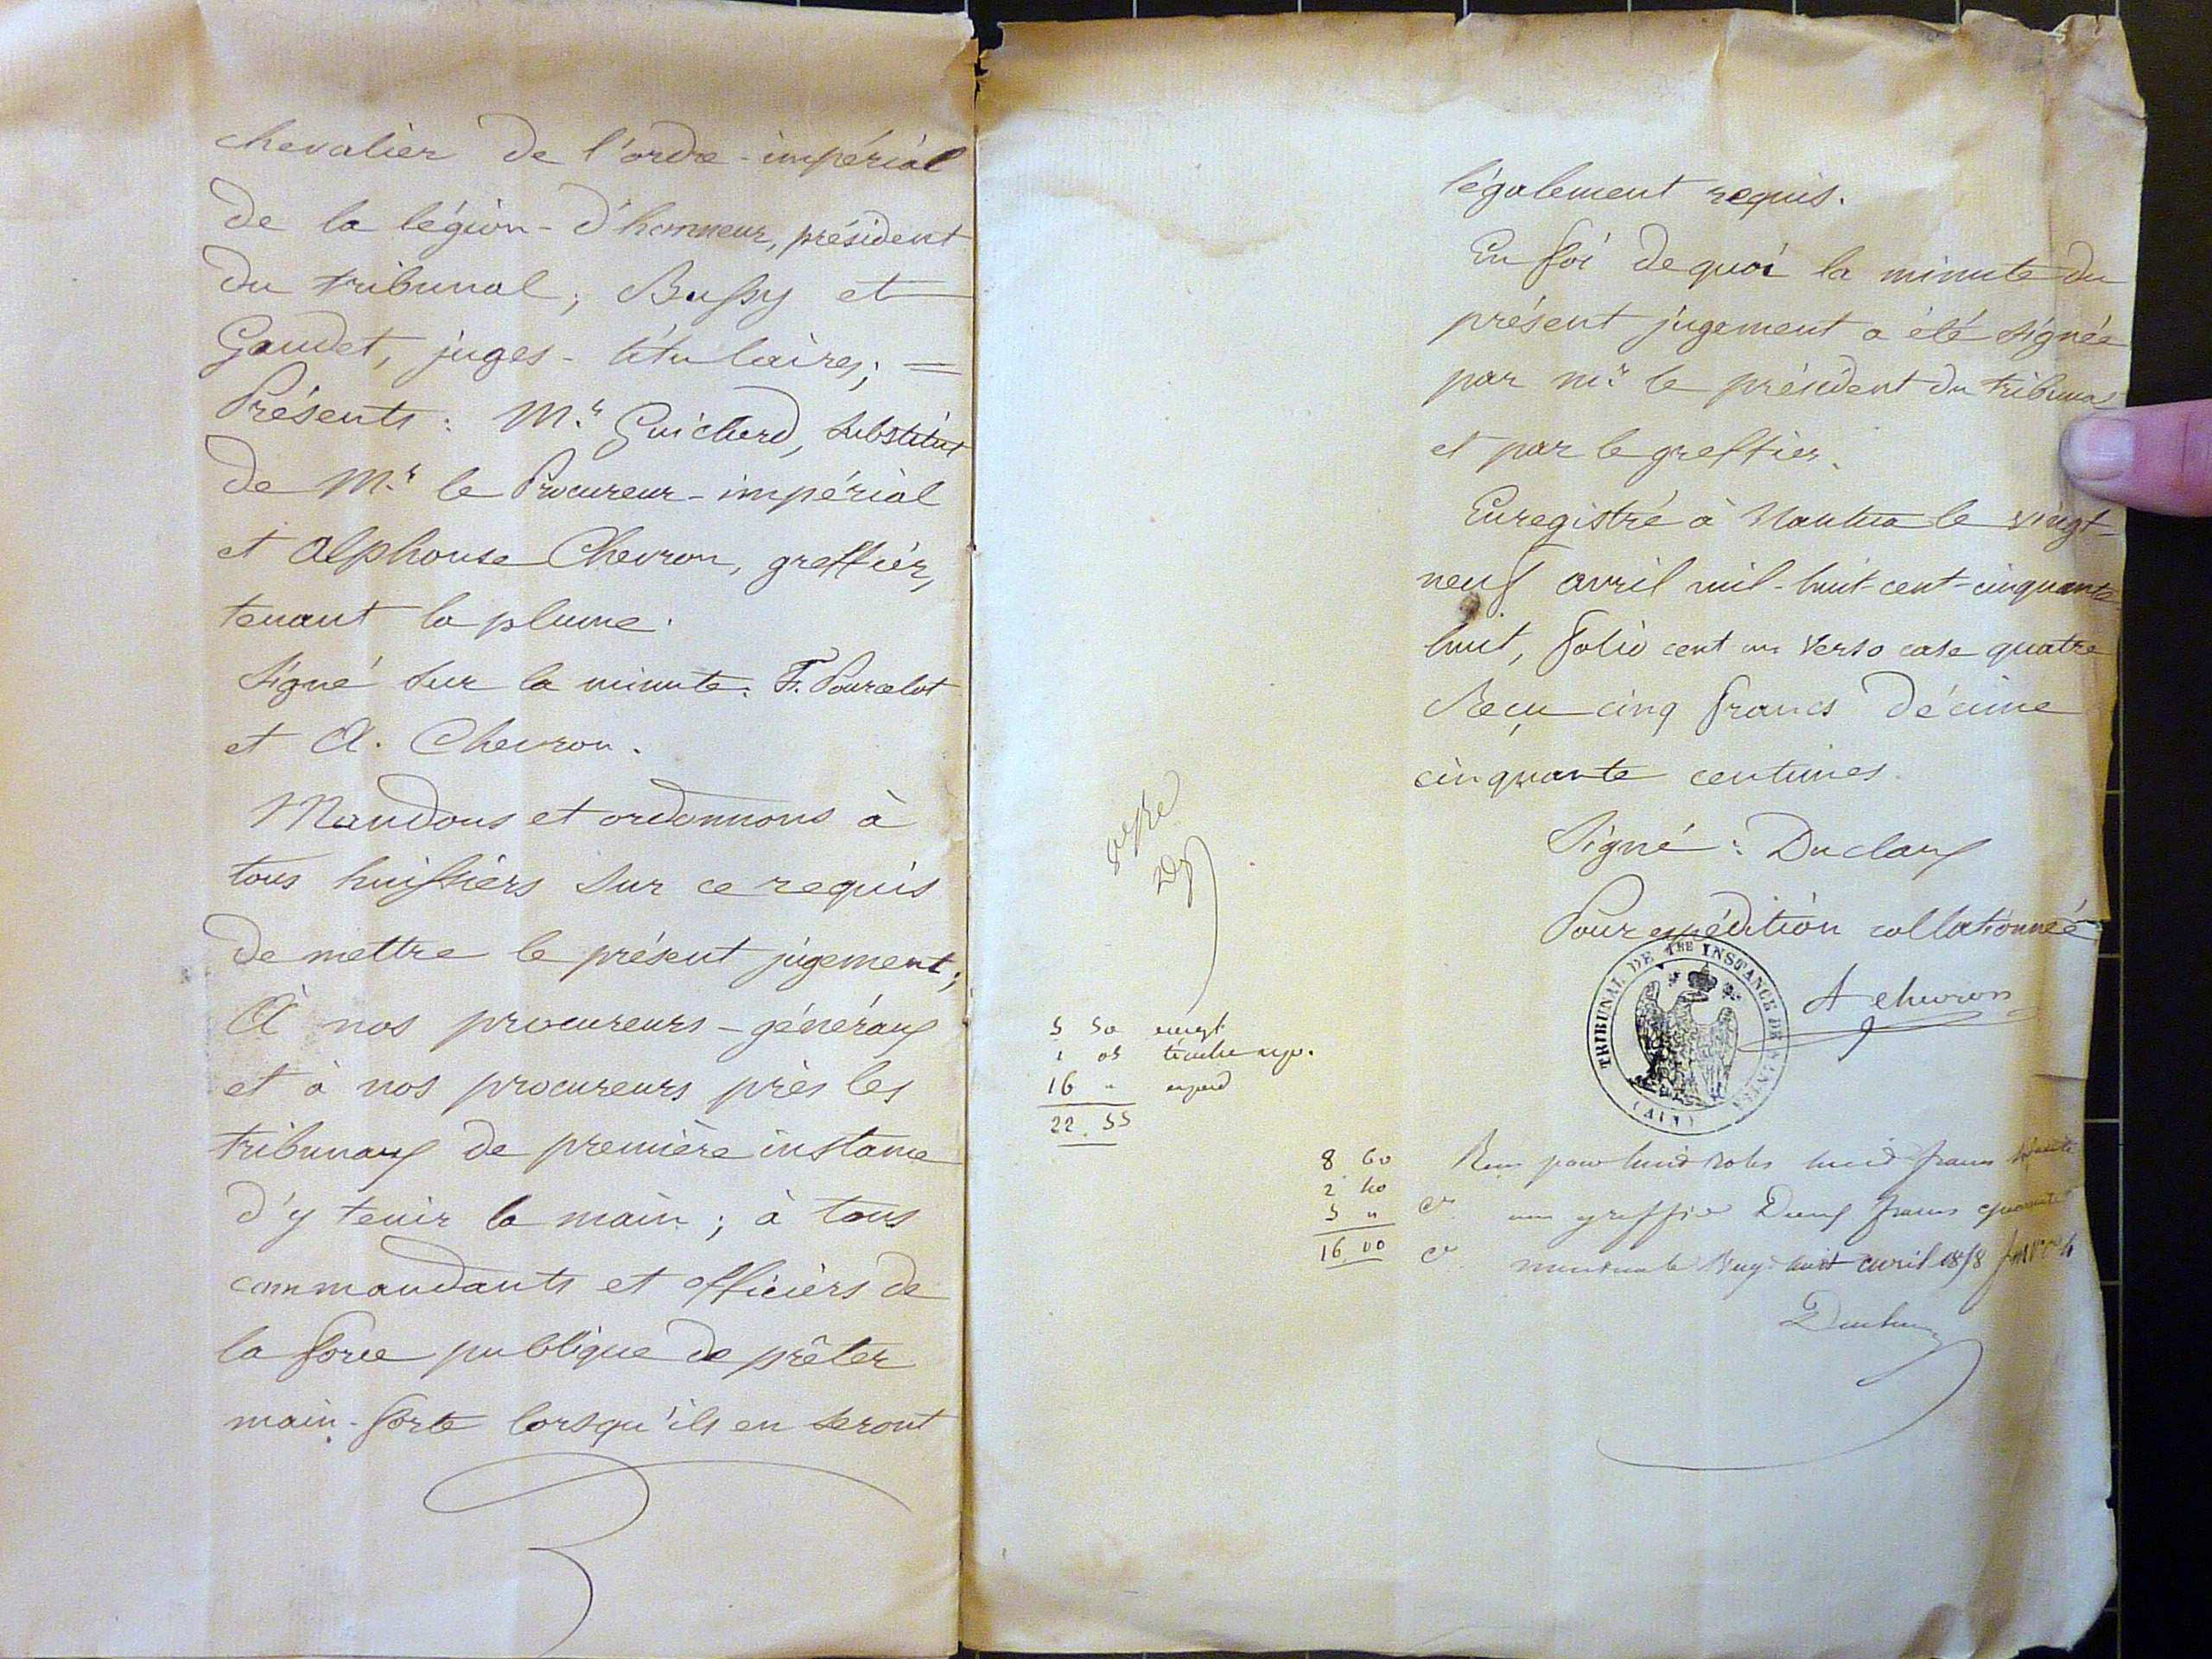 chevalier de l'ordre-impérial
de la légion-d'honneur, président
du tribunal; Bussy et
Gaudet, juges-titulaires; =
Présents: Mr Guichard, substitut
de Mr le Procureur-impérial
et Alphonse Chevron, greffier,
tenant la plume.
Signé sur la minute: F. Pourcelot
et A. Chevron.
Mandons et ordonnons à
tous huissiers sur ce requis
de mettre le présent jugement;
A nos procureurs-généraux
et à nos procureurs près les
tribunaux de première instance
d'y tenir la main; à tous
commandants et officiers de
la force publique de prêter
main-forte lorsqu'ils en seront
légalement requis.
En foi de quoi la minute du
présent jugement a été signée
par mr le président du tribunal
et par le greffier.
Enregistré à Nantua le vingt-
neuf avril mil-huit-cent-cinquante
huit, folio cent un verso case quatre
Reçu cinq francs décime
cinquante centimes.
Signé: Duclaux
Pour expédition collationnée
A Chevron
TRIBUNAL DE 1RE INSTANCE DE NANTUA
(AIN)
5 50 enregt
1 05 timbre
16 "
22.55
8 60
2 40
5 "
16 00
Reçu pour huit rôles huit francs
greffier Deux francs quarante
avril 1858